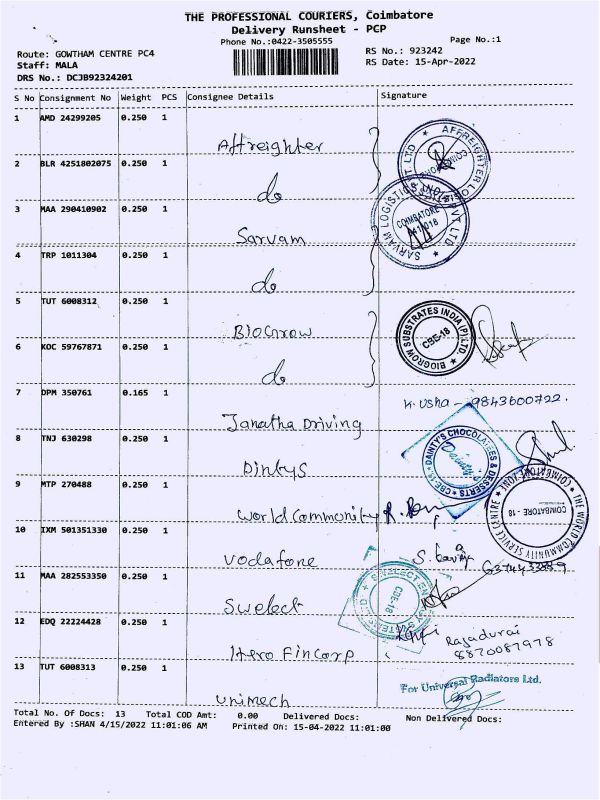 THE PROFESSIONAL COURIERS, Coimbatore
Delivery Runsheet - PCP
Phone No.:0422-3505555
Page No.:1
Route: GOWTHAM CENTRE PC4
RS No.: 923242
Staff: MALA
RS Date: 15-Apr-2022
DRS No.: DCJB92324201
S No Consignment No Weight PCS Consignee Details Signature
1 AMD 24299205 0.250 1
Affreighter
AFFREIGHTER
2 BLR 4251802075 0.250 1
do
SARVAM LOGISTICS PVT LTD
COIMBATORE
3 MAA 290410902 0.250 1
Sarvam
4 TRP 1011304 0.250 1
do
5 TUT 6008312 0.250 1
BIOGrow
BIOGROW SUBSTRATES INDIA (P) LTD.
CBE-18
6 KOC 59767871 0.250 1
do
7 DPM 350761 0.165 1
K. Usha - 9843600722.
Janatha Driving
8 TNJ 630298 0.250 1
Dintys
DAINTY'S CHOCOLATES & DESSERTS
CBE-18
Dainty's
9 MTP 270488 0.250 1
World Community
THE WORLD COMMUNITY SERVICE CENTRE
COIMBATORE - 18
10 IXM 501351330 0.250 1
Vodafone
11 MAA 282553350 0.250 1
Swelect
CBE-18
12 EDQ 22224428 0.250 1
Hero Fincorp
Rajadurai
8870087978
13 TUT 6008313 0.250 1
Unimech
For Universal Radiators Ltd.
Total No. Of Docs: 13 Total COD Amt: 0.00 Delivered Docs: Non Delivered Docs:
Entered By :SHAN 4/15/2022 11:01:06 AM Printed On: 15-04-2022 11:01:00